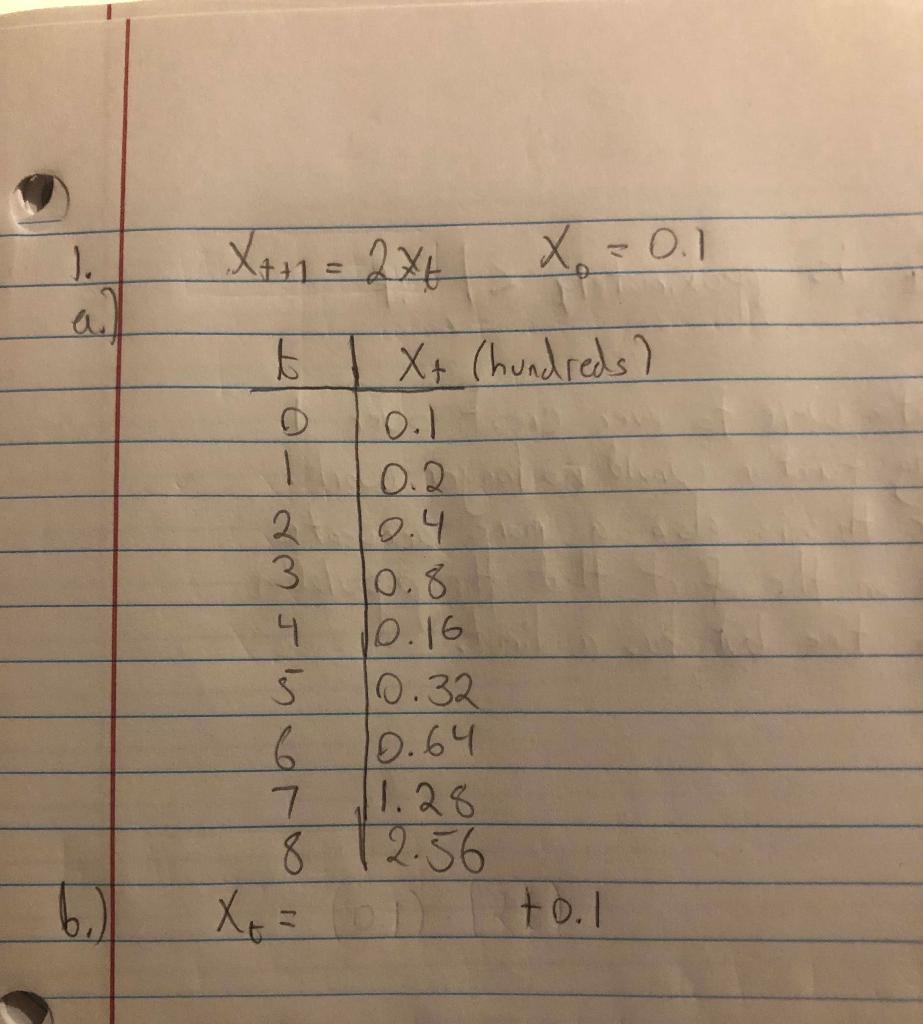 1. X_{t+1} = 2x_t X_0 = 0.1
a.)
t | X_t (hundreds)
0 | 0.1
1 | 0.2
2 | 0.4
3 | 0.8
4 | 0.16
5 | 0.32
6 | 0.64
7 | 1.28
8 | 2.56
b.) X_t = +0.1